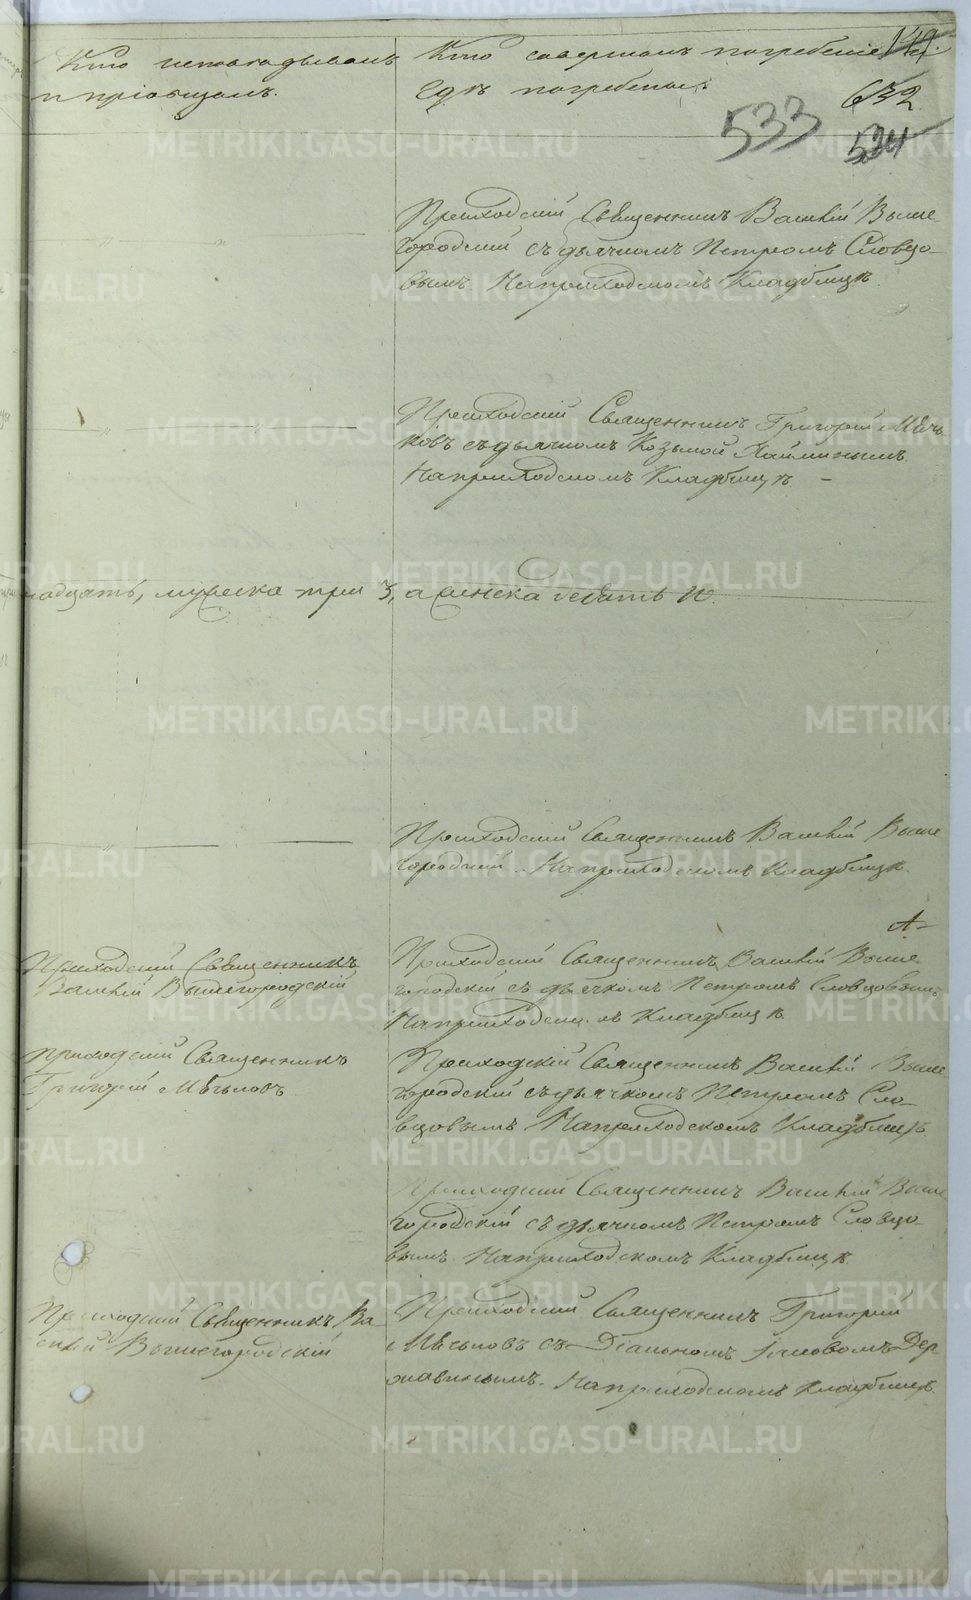 Кто исповѣдывалъ
и пріобщалъ.
Кто совершалъ погребеніе и
гдѣ погребены.
149.
632
533
534
Приходскій Священникъ Василій Выше
городскій съ дьячкомъ Петромъ Словцо-
вымъ. На приходскомъ Кладбищѣ.
Приходскій Священникъ Григорій Мѣгь
ковъ съ дьячкомъ Козьмой
На приходскомъ Кладбищѣ. –
надцать, мужеска три 3, а женска
Приходскій Священникъ Василій Выше
городскій. На приходскомъ Кладбищѣ.
Приходскій Священникъ
Василій Вышегородскій
Приходскій Священникъ Василій Выше
городскій съ дьячкомъ Петромъ Словцовымъ
На приходскомъ Кладбищѣ.
Приходскій Священникъ
Григорій
Приходскій Священникъ Василій Выше
городскій съ дьячкомъ Петромъ Сло-
вцовымъ На приходскомъ Кладбищѣ
Приходскій Священникъ Василій Выше
городскій съ дьячкомъ Петромъ Словцо-
вымъ. На приходскомъ Кладбищѣ.
Приходскій Священникъ Ва-
силій Вышегородскій
Приходскій Священникъ Григорій
съ Діакономъ Іаковомъ Дер
жавинымъ. На приходскомъ Кладбищѣ.
METRIKI.GASO-URAL.RU